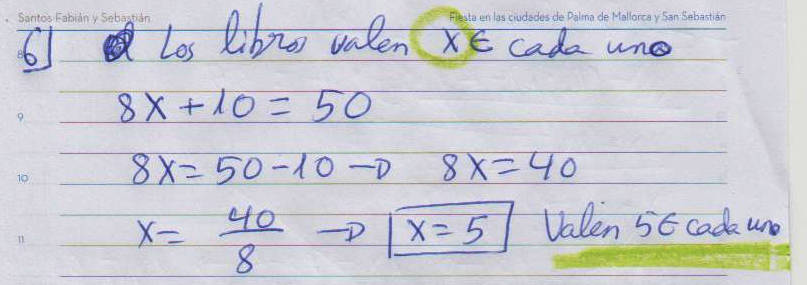 Santos Fabián y Sebastián Fiesta en las ciudades de Palma de Mallorca y San Sebastián
6) Los libros valen x € cada uno
8
9
8x + 10 = 50
10
8x = 50 - 10 → 8x = 40
11
x = 40/8 → x = 5 Valen 5€ cada uno